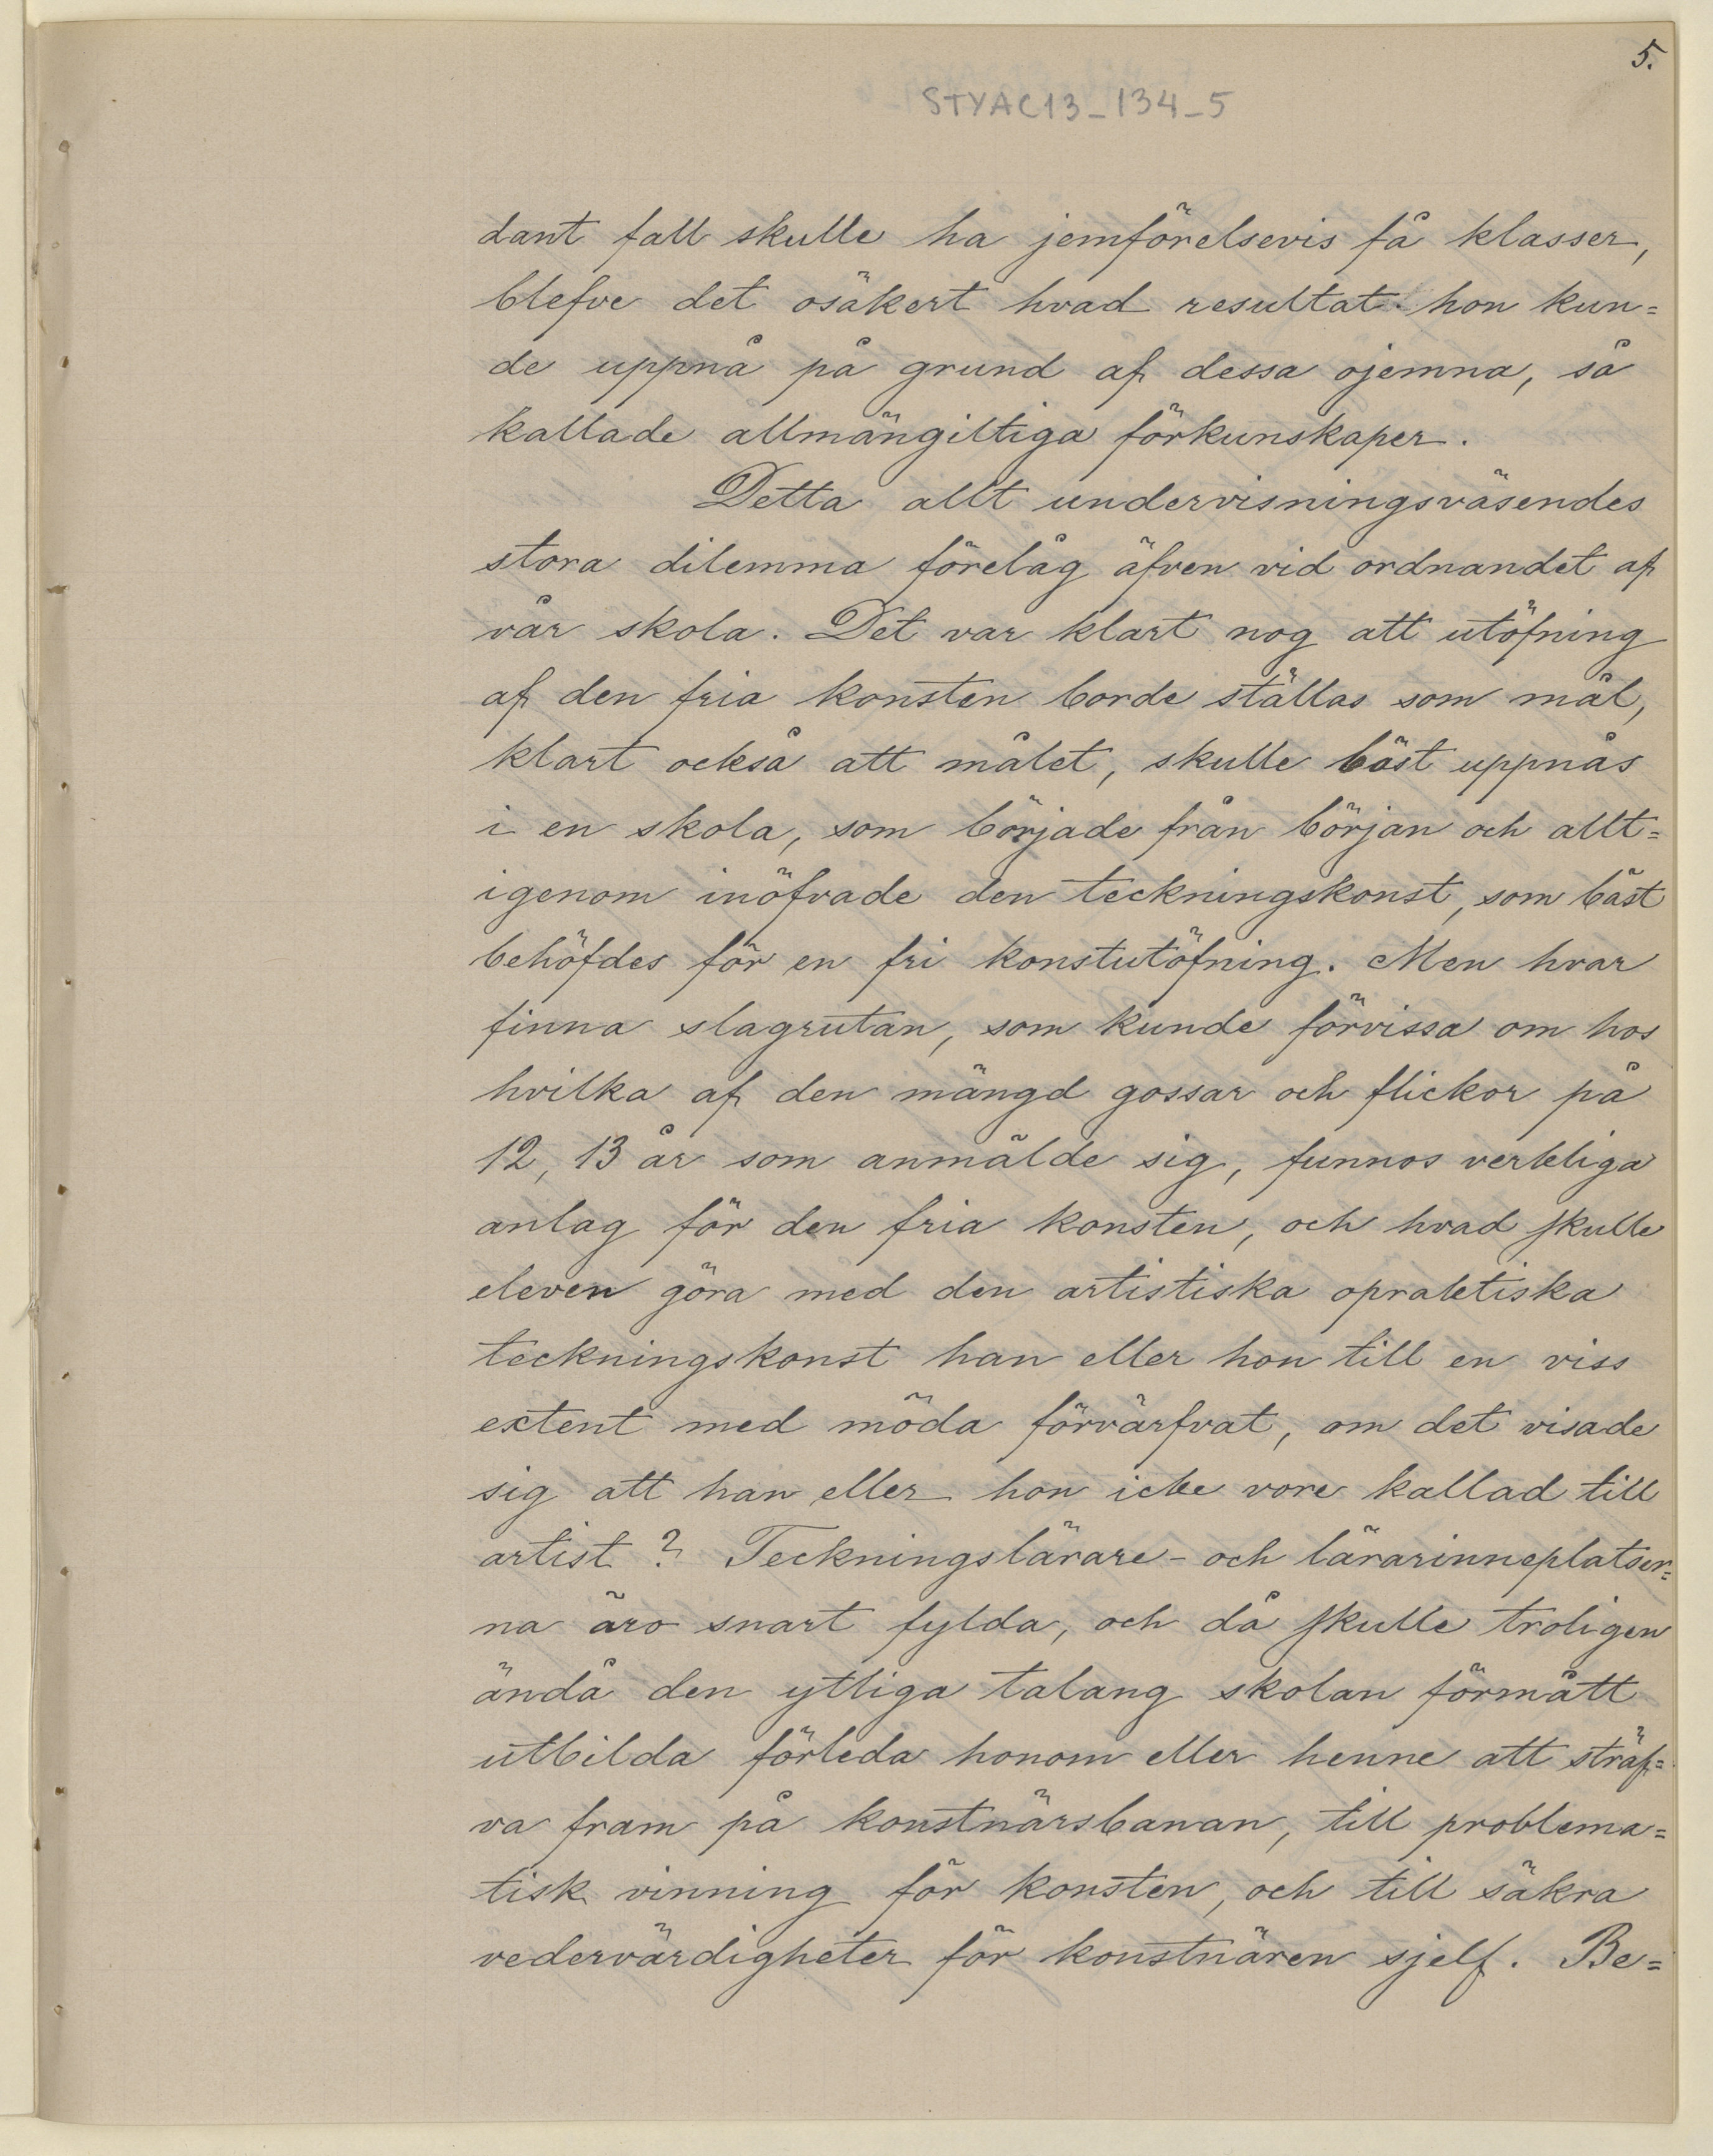 5.
STYAC13_134_5
dant fall skulle ha jemförelsevis få klasser,
blefve det osäkert hvad resultat hon kun=
de uppnå på grund af dessa ojemna, så
kallade allmängiltiga förkunskaper.
Detta allt undervisningsväsendes
stora dilemma förelåg äfven vid ordnandet af
vår skola. Det var klart nog att utöfning
af den fria konsten borde ställas som mål,
klart också att målet, skulle bäst uppnås
i en skola, som började från början och allt=
igenom inöfvade den teckningskonst, som bäst
behöfdes för en fri konstutöfning. Men hvar
finna slagrutan, som kunde förvissa om hos
hvilka af den mängd gossar och flickor på
12, 13 år som anmälde sig, funnos verkliga
anlag för den fria konsten, och hvad skulle
eleven göra med den artistiska opraktiska
teckningskonst han eller hon till en viss
extent med möda förvärfvat, om det visade
sig att han eller hon icke vore kallad till
artist? Teckningslärare- och lärarinneplatser=
na äro snart fylda, och då skulle troligen
ändå den ytliga talang skolan förmått
utbilda förleda honom eller henne att sträf=
va fram på konstnärsbanan, till problema=
tisk vinning för konsten, och till säkra
vedervärdigheter för konstnären sjelf. Be=